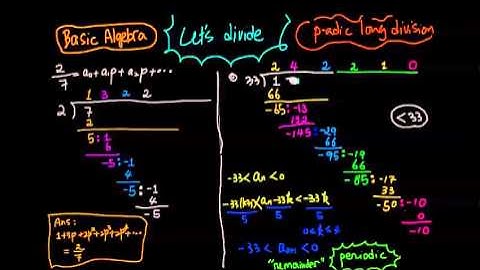 Basic Algebra
Let's divide
p-adic long division
2/7 = a₀+a₁p+a₂p+⋯
1 3 2 2
2 7
2
5:1
6
-5:-1
4
-5:-1
4
-5
Ans:
1+3p+2p²+2p³+2p⁴+⋯
= 2/7
2 4 2 2 1 0
33 1
66
-65:-13
132
-145:-29
66
-95:-19
66
-85:-17
33
-50:-10
0
-10
<33
-33< aₙ <0
-33< aₙ₊₁ <0
"remainder"
periodic